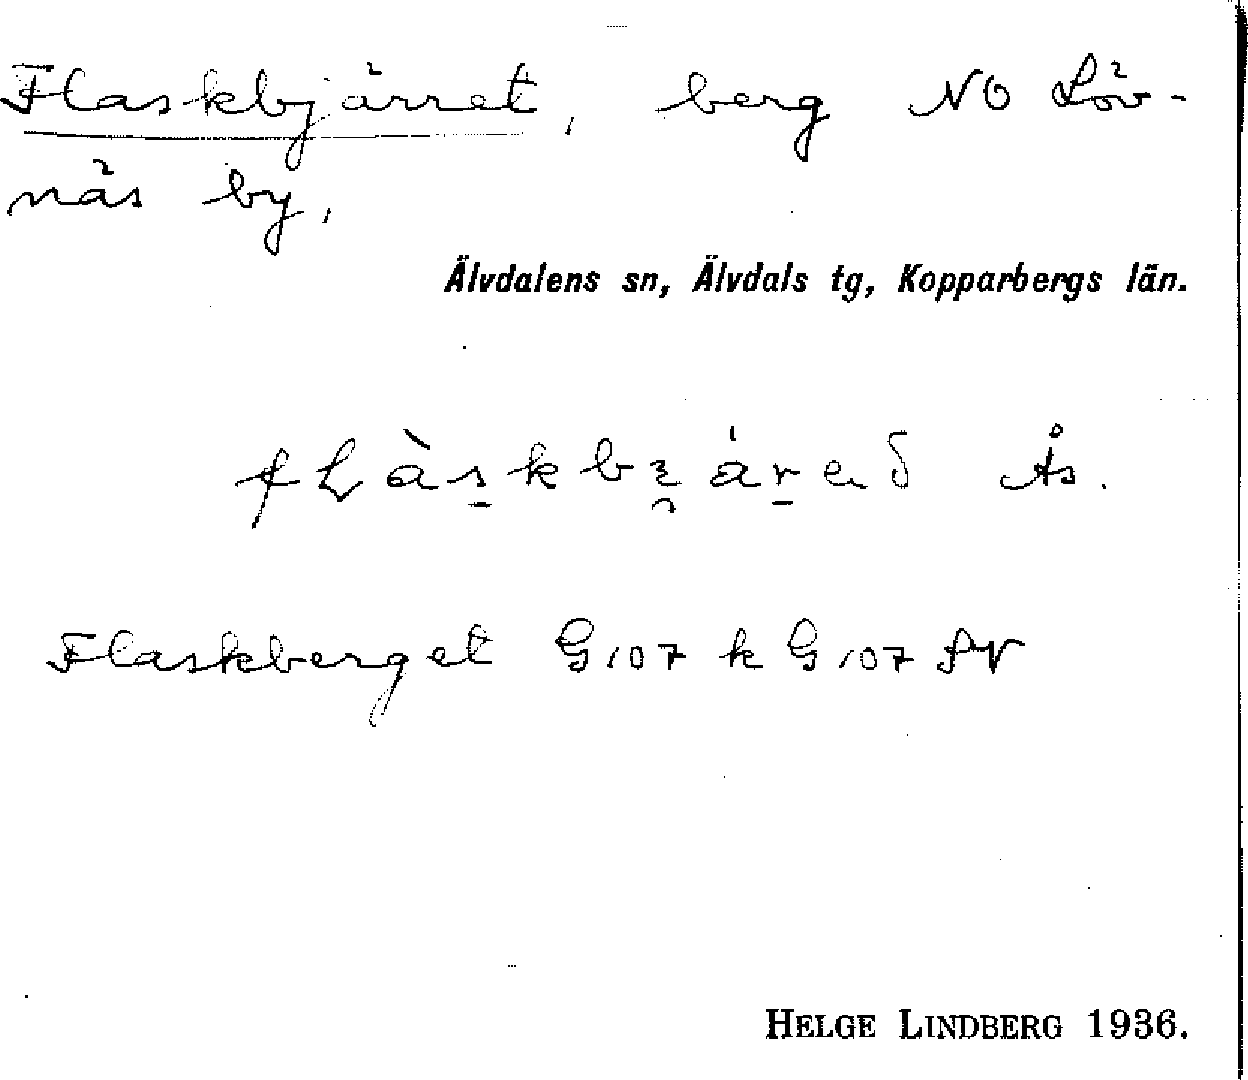 Flaskbjärret, berg NO Löv-
näs by,
Älvdalens sn, Älvdals tg, Kopparbergs län.
Ås.
Flaskberget G107 k G107 SV
HELGE LINDBERG 1936.